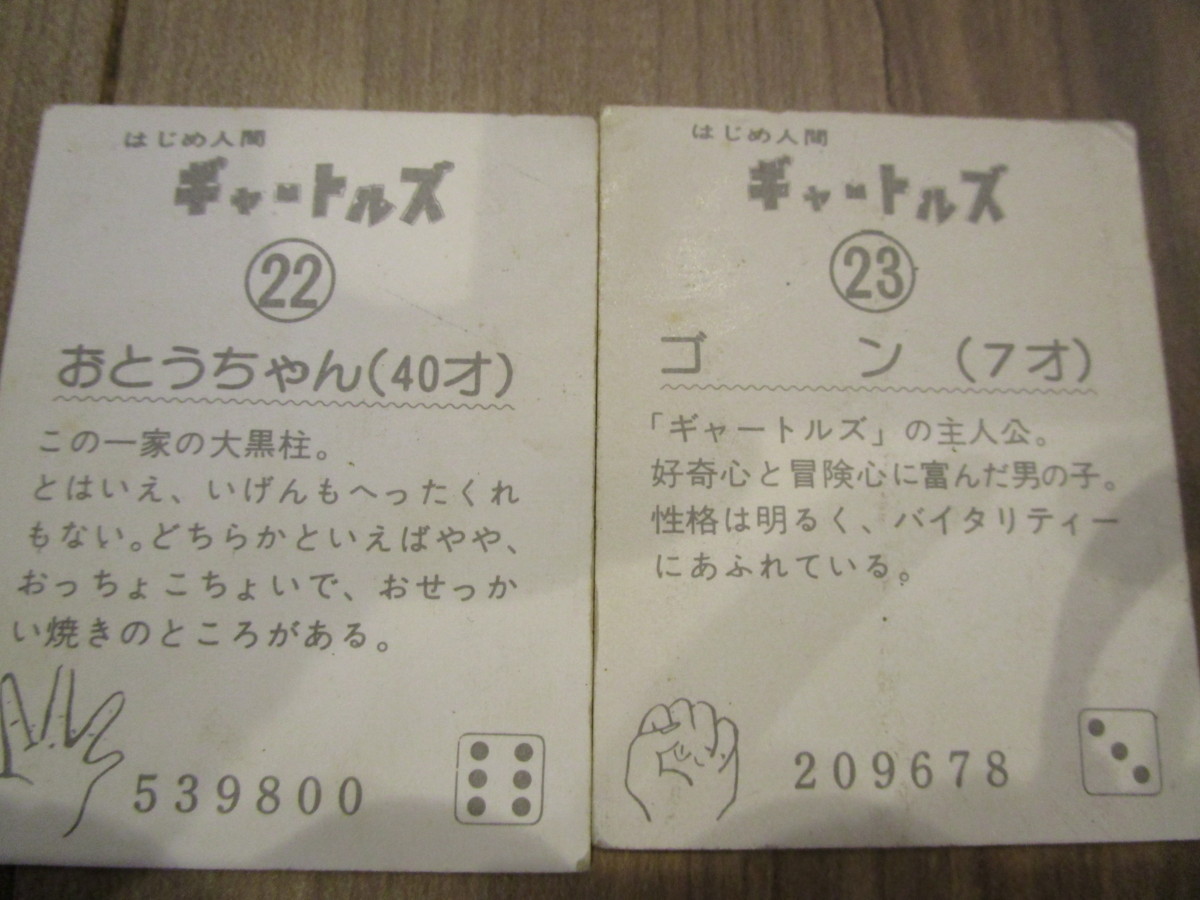 はじめ人間
ギャートルズ
22
おとうちゃん(40才)
この一家の大黒柱。
とはいえ、いげんもへったくれ
もない。どちらかといえばやや、
おっちょこちょいで、おせっか
い焼きのところがある。
539800
はじめ人間
ギャートルズ
23
ゴン (7才)
「ギャートルズ」の主人公。
好奇心と冒険心に富んだ男の子。
性格は明るく、バイタリティー
にあふれている。
209678